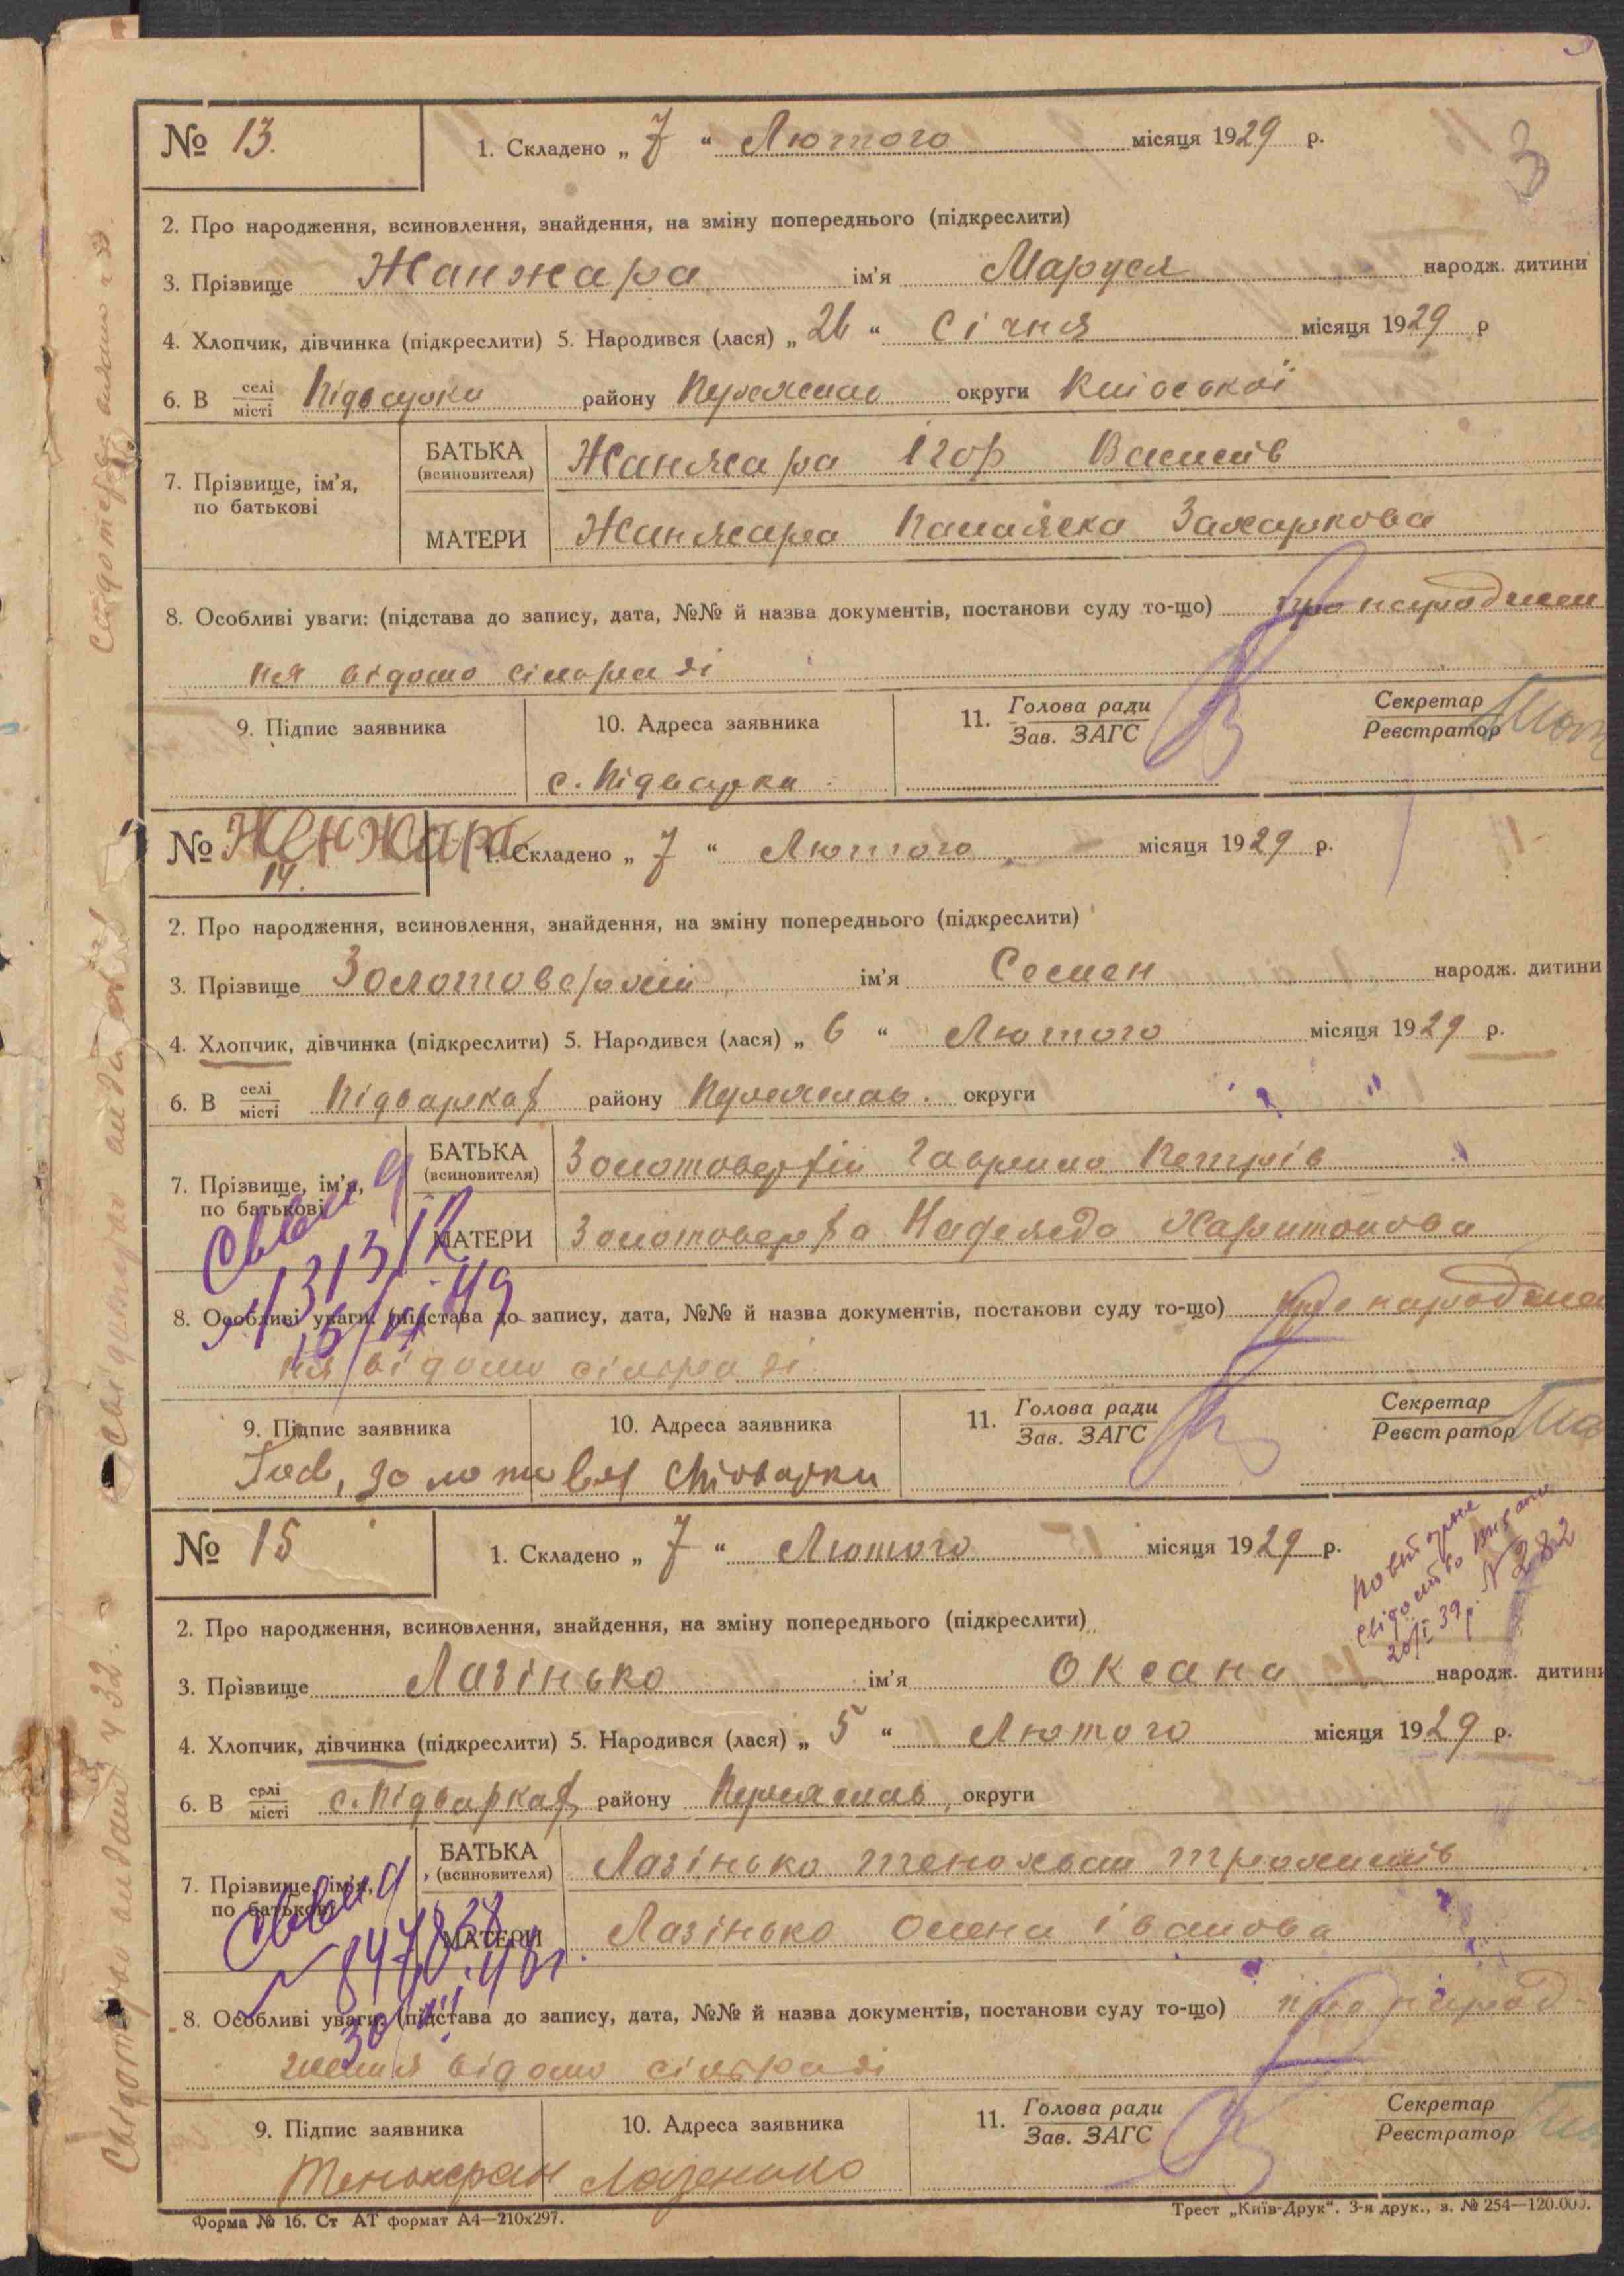 3
№ 13. 1. Складено „ 7 “ Лютого місяця 1929 р.
2. Про народження, всиновлення, знайдення, на зміну попереднього (підкреслити)
3. Прізвище Жанжара ім’я Маруся народж. дитини
4. Хлопчик, дівчинка (підкреслити) 5. Народився (лася) „ 26 “ Січня місяця 1929 р
6. В селі місті Підварки району Переяслав округи Київської
7. Прізвище, ім’я, по батькові
БАТЬКА (всиновителя) Жанжара Ігор Василів
МАТЕРИ Жанжара Палажка Захаркова
8. Особливі уваги: (підстава до запису, дата, №№ й назва документів, постанови суду то-що) про народжен
ня відомо сільраді
9. Підпис заявника 10. Адреса заявника 11. Голова ради Зав. ЗАГС Секретар Реєстратор
с. Підварки
№ Женжара 14. 1. Складено „ 7 “ Лютого місяця 1929 р.
2. Про народження, всиновлення, знайдення, на зміну попереднього (підкреслити)
3. Прізвище Золотоверхий ім’я Семен народж. дитини
4. Хлопчик, дівчинка (підкреслити) 5. Народився (лася) „ 6 “ Лютого місяця 1929 р.
6. В селі місті Підварках району Переяслав. округи „ “
7. Прізвище, ім’я, по батькові
БАТЬКА (всиновителя) Золотоверхий Гаврило Петрів
МАТЕРИ Золотоверха Надежда Харитонова
8. Особливі уваги: (підстава до запису, дата, №№ й назва документів, постанови суду то-що) про народжен
ня відомо сільраді
9. Підпис заявника 10. Адреса заявника 11. Голова ради Зав. ЗАГС Секретар Реєстратор
№ 15 1. Складено „ 7 “ Лютого місяця 1929 р.
Повторне свідоцтво видано
20/I 39 р. № 282
2. Про народження, всиновлення, знайдення, на зміну попереднього (підкреслити)
3. Прізвище Лазінько ім’я Оксана народж. дитини
4. Хлопчик, дівчинка (підкреслити) 5. Народився (лася) „ 5 “ Лютого місяця 1929 р.
6. В селі місті с. Підварках району Переяслав, округи
7. Прізвище, ім’я, по батькові
БАТЬКА (всиновителя) Лазінько Трохимів
МАТЕРИ Лазінько Олена Іванова
8. Особливі уваги: (підстава до запису, дата, №№ й назва документів, постанови суду то-що) про народ-
ження відомо сільраді
9. Підпис заявника 10. Адреса заявника 11. Голова ради Зав. ЗАГС Секретар Реєстратор
Лазенько
Форма № 16. Ст АТ формат А4—210х297.
Трест „Київ-Друк“. 3-я друк., з. № 254—120.000.